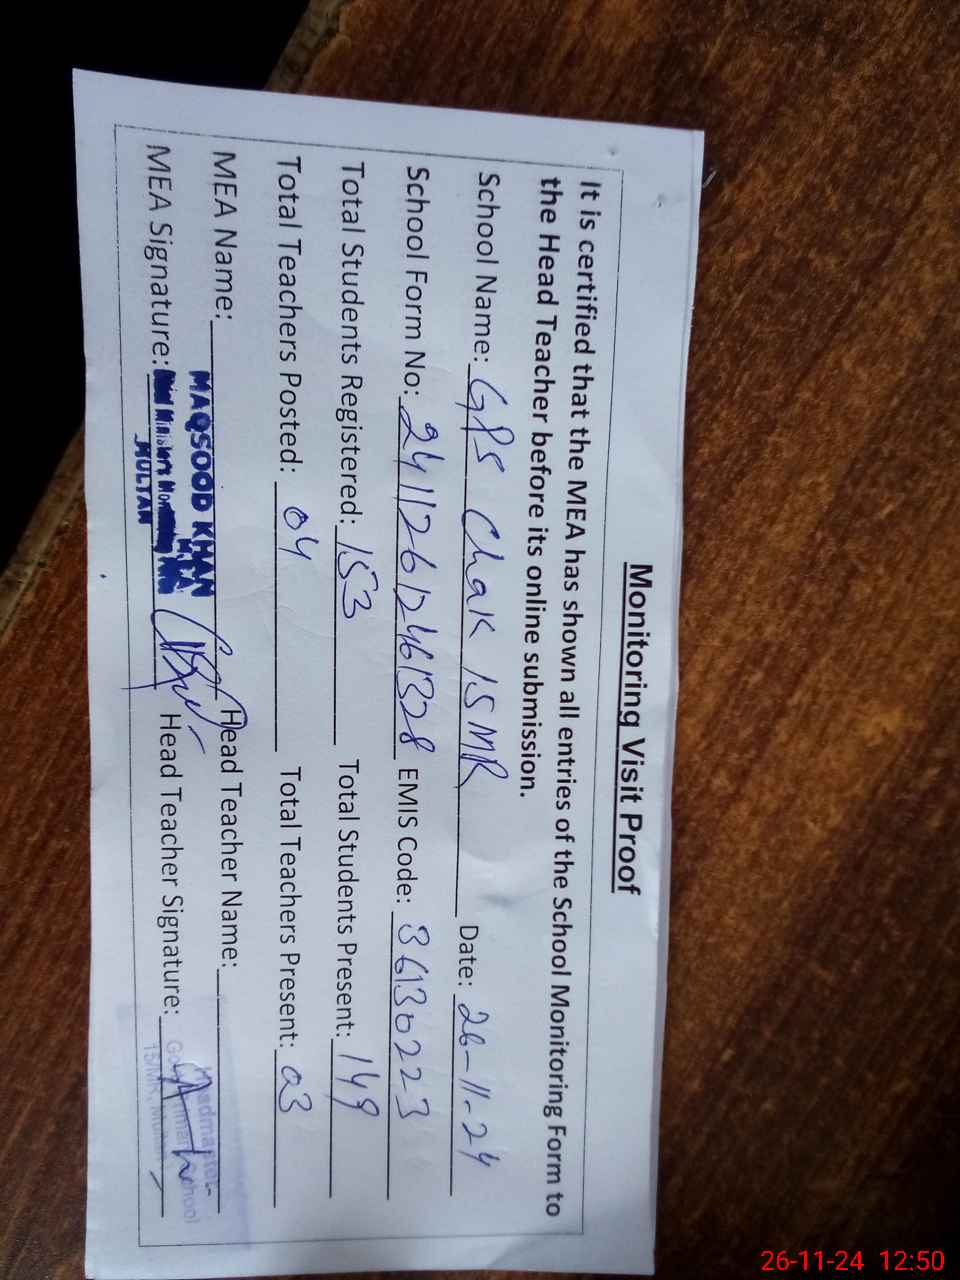 Monitoring Visit Proof
It is certified that the MEA has shown all entries of the School Monitoring Form to
the Head Teacher before its online submission.
School Name: GPS Chak 15 MR Date: 26-11-24
School Form No: 24112612461328 EMIS Code: 36130223
Total Students Registered: 153 Total Students Present: 149
Total Teachers Posted: 04 Total Teachers Present: 03
MEA Name: MAQSOOD KHAN Head Teacher Name:
MEA Signature: MEA Head Teacher Signature:
MULTAN
26-11-24 12:50